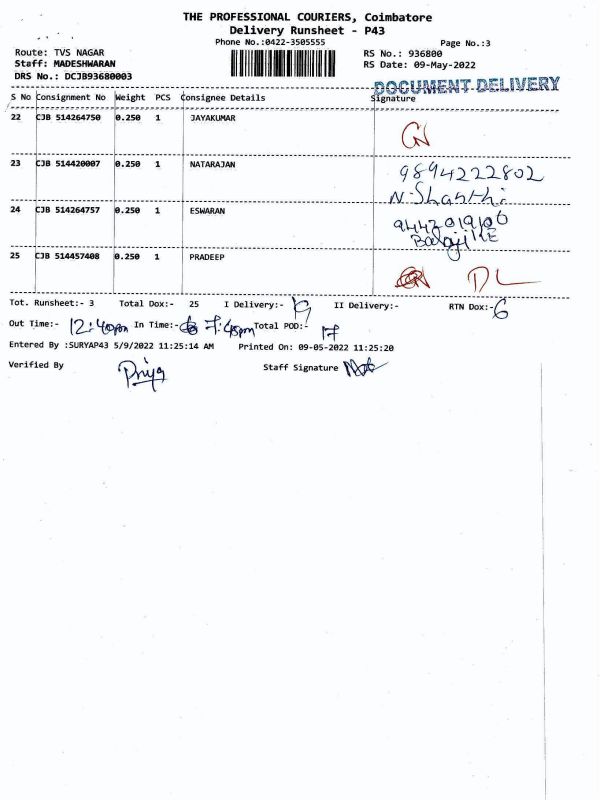 THE PROFESSIONAL COURIERS, Coimbatore
Delivery Runsheet - P43
Phone No.:0422-3505555
Page No.:3
Route: TVS NAGAR
RS No.: 936800
Staff: MADESHWARAN
RS Date: 09-May-2022
DRS No.: DCJB93680003
DOCUMENT DELIVERY
S No Consignment No Weight PCS Consignee Details Signature
22 CJB 514264750 0.250 1 JAYAKUMAR
23 CJB 514420007 0.250 1 NATARAJAN 9894222802
N-Shanthi
24 CJB 514264757 0.250 1 ESWARAN
Balaji
25 CJB 514457408 0.250 1 PRADEEP DL
Tot. Runsheet:- 3 Total Dox:- 25 I Delivery:- 19 II Delivery:- RTN Dox:- 6
Out Time:- 12:40pm In Time:- 7:45pm Total POD:- 17
Entered By :SURYAP43 5/9/2022 11:25:14 AM Printed On: 09-05-2022 11:25:20
Verified By Priya Staff Signature